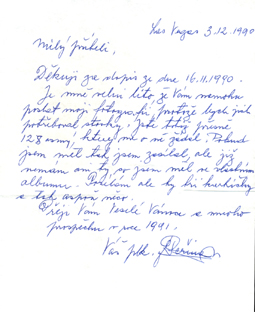 Las Vegas 3.12.1990
Milý příteli,
Děkuji za dopis ze dne 16.11.1990.
Je mně velmi líto, že Vám nemohu
poslat moji fotografii, protože bych jich
potřeboval stovky, jako těch přesně
128 , kteří mě o ni žádali. Pokud
jsem měl tak jsem zasílal, ale již
nemám ani ty co jsem měl ve vlastním
albumu. Posílám ale by
a tak aspoň něco.
Přeji Vám Veselé Vánoce a mnoho
prospěchu v roce 1991.
Váš plk.